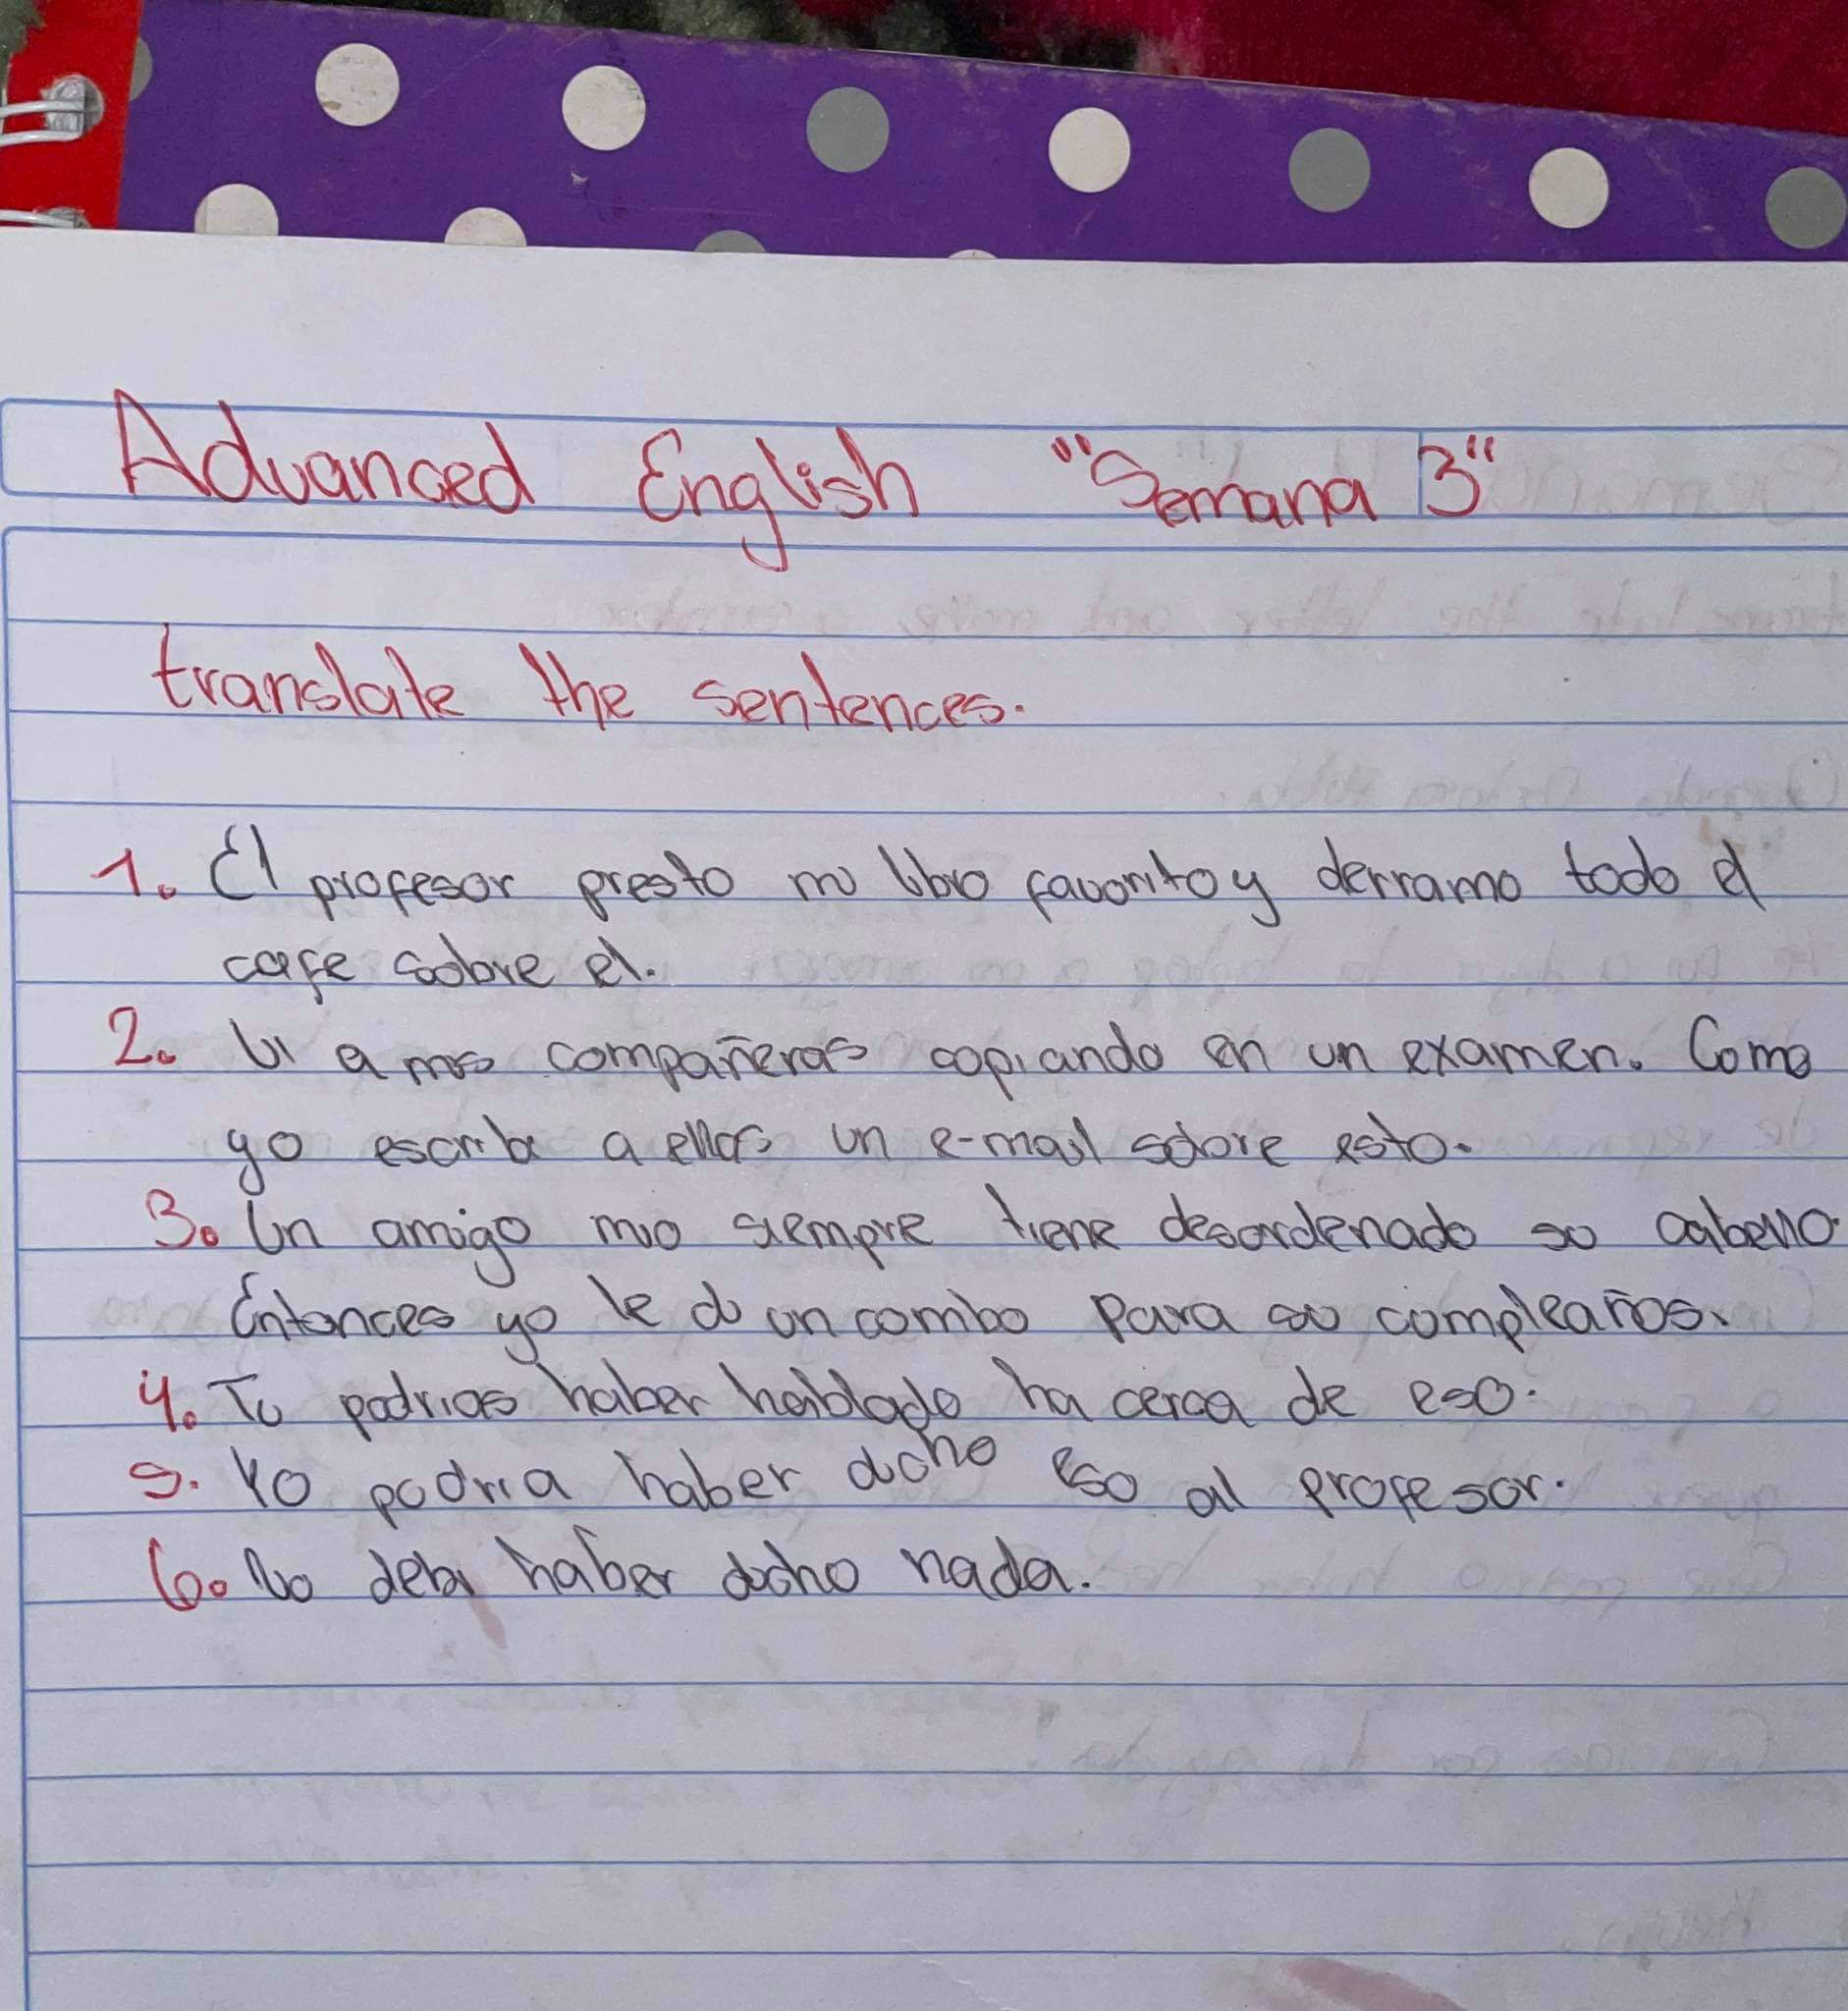 Advanced English "Semana 3"
translate the sentences.
1. El profesor presto mi libro favorito y derramo todo el
cafe sobre el.
2. Vi a mis compañeros copiando en un examen. Como
yo escribi a ellos un e-mail sobre esto.
3. Un amigo mio siempre tiene desordenado su cabello.
Entonces yo le di un combo para su cumpleaños.
4. Tu podrias haber hablado ha cerca de eso.
5. Yo podria haber dicho eso al profesor.
6. No debi haber dicho nada.